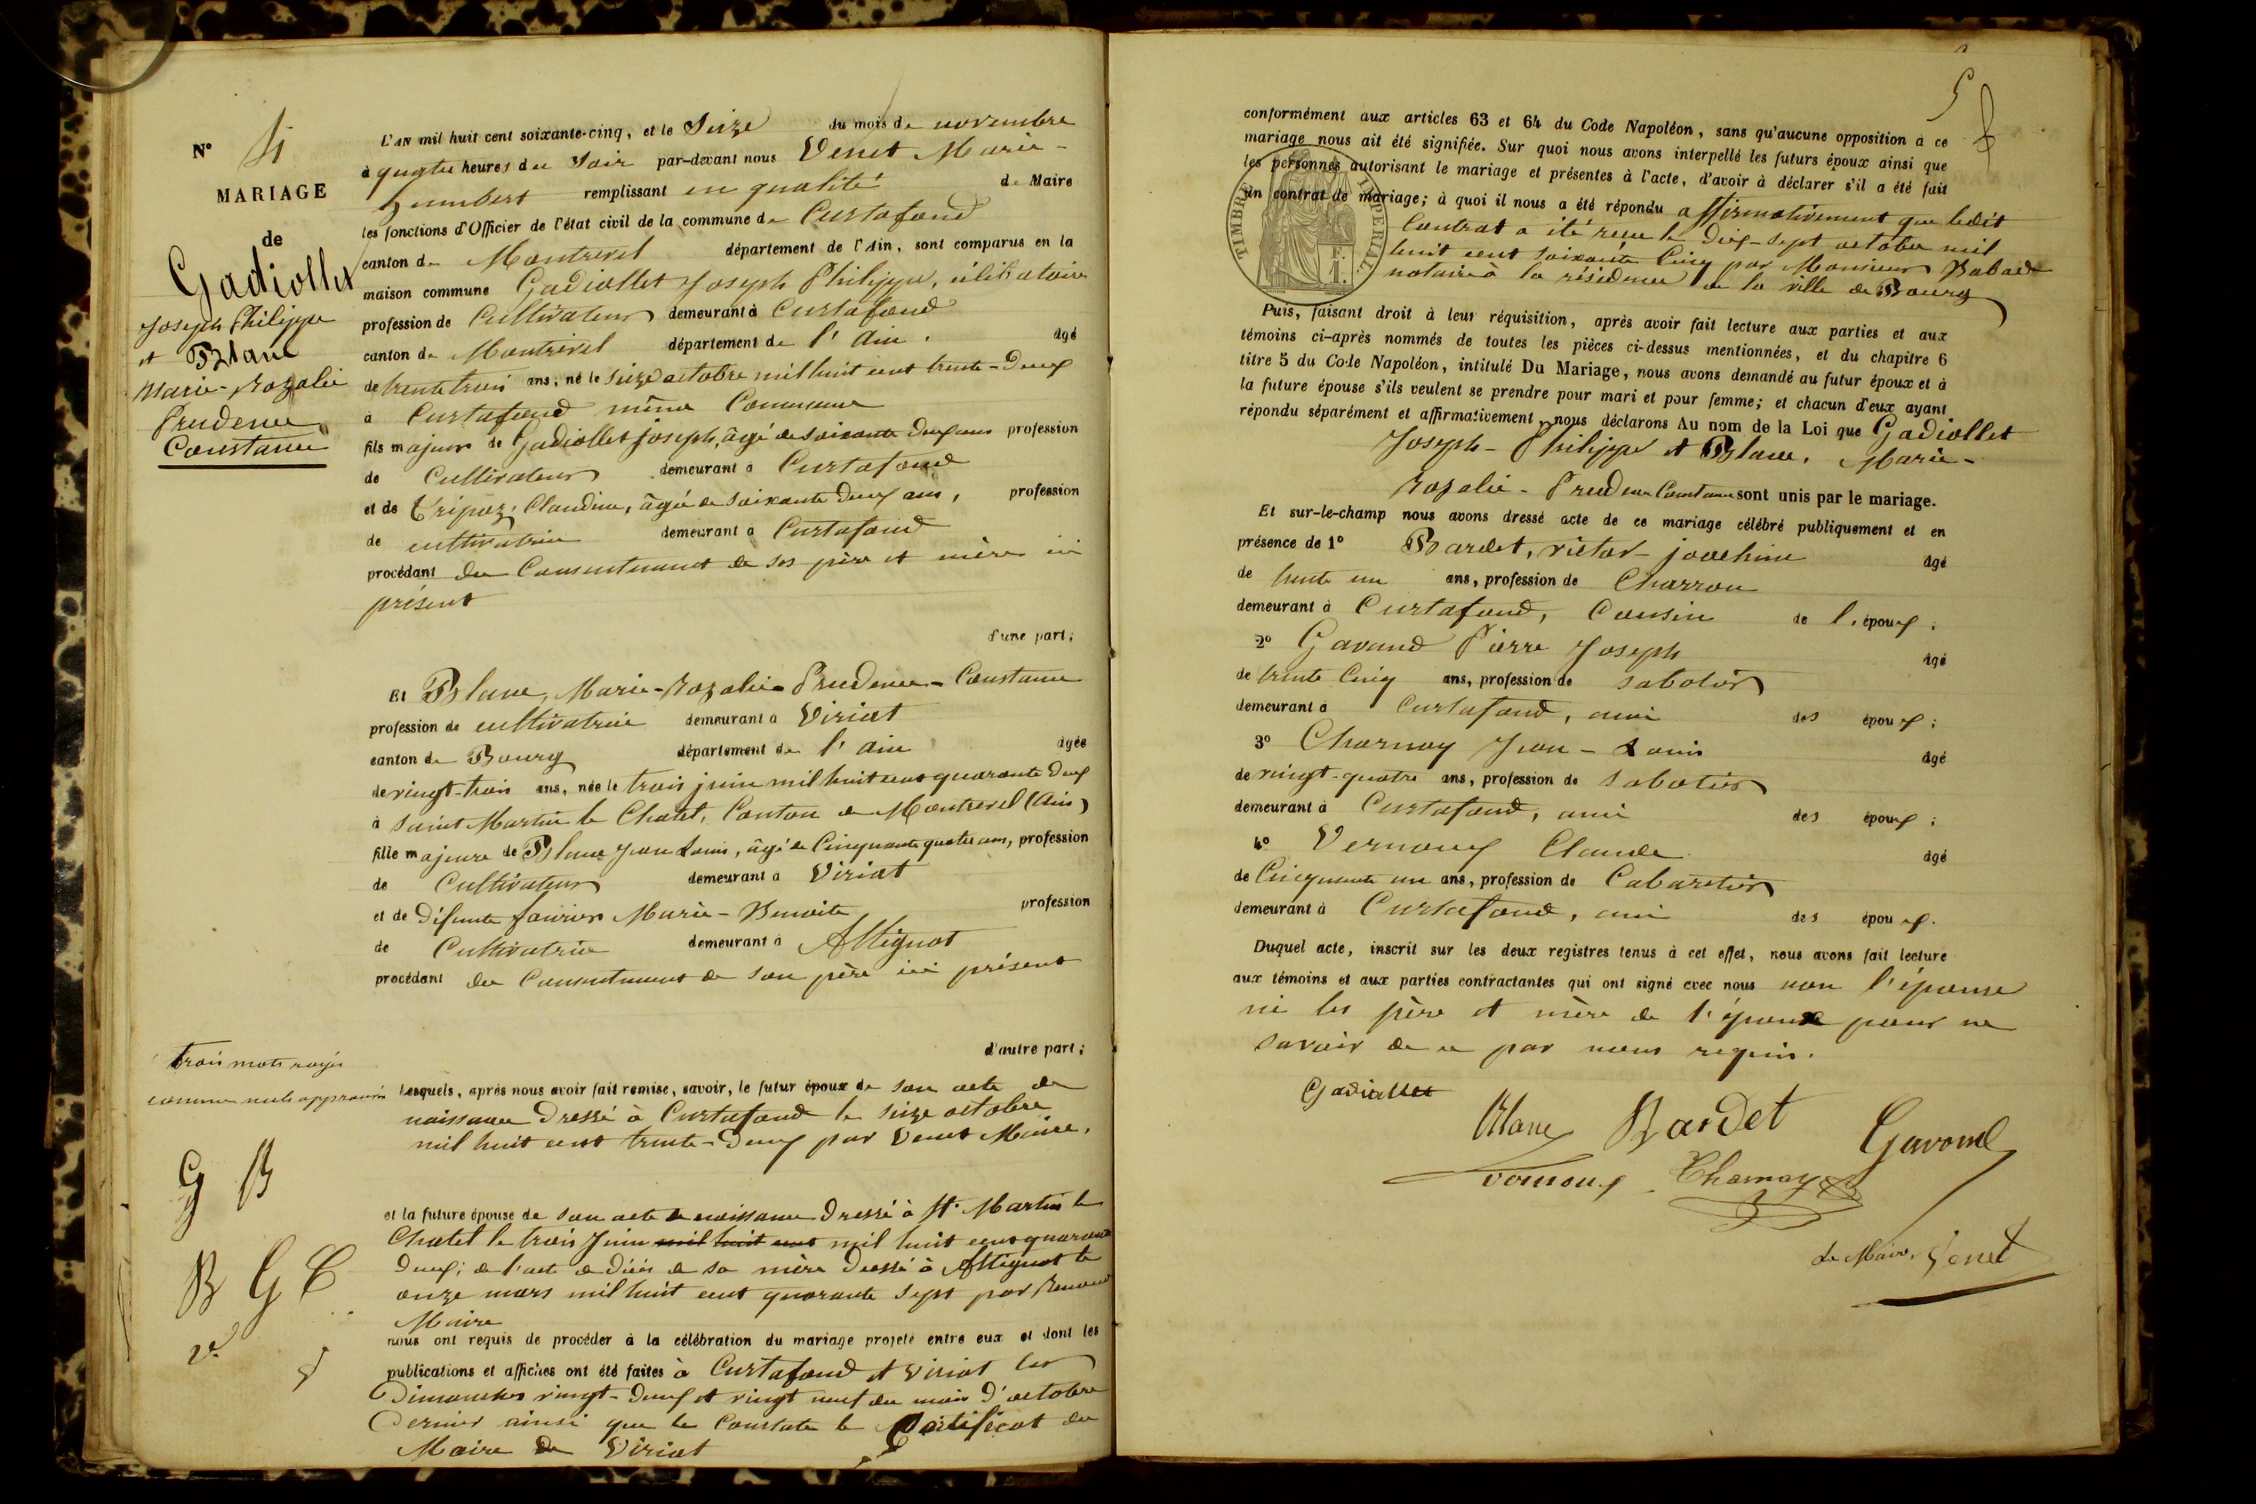 N° 4
MARIAGE
de
Gadiollet
Joseph Philippe
et Blanc
Marie-Rozalie
Prudence
Constance
L'an mil huit cent soixante-cinq, et le Seize du mois de novembre
à quatre heures du Soir par-devant nous Venet Marie-
humbert remplissant en qualité de Maire
les fonctions d'Officier de l'état civil de la commune de Curtafond
canton de Montrevel département de l'Ain, sont comparus en la
maison commune Gadiollet Joseph Philippe, célibataire
profession de Cultivateur demeurant à Curtafond
canton de Montrevel département de l'Ain. âgé
de trente trois ans, né le seize octobre mil huit cent trente-deux
à Curtafond même Commune
fils majeur de Gadiollet joseph, âgé de soixante deux ans profession
de Cultivateur demeurant à Curtafond
et de Tripoz, Claudine, âgée de soixante deux ans, profession
de cultivatrice demeurant à Curtafond
procédant du Consentement de ses père et mère ici
présent
d'une part;
Et Blanc, Marie-Rozalie-Prudence-Constance
profession de cultivatrice demeurant à Viriat
canton de Bourg département de l'Ain âgée
de vingt-trois ans, née le trois juin mil huit cent quarante deux
à Saint Martin le Chatel, Canton de Montrevel (Ain)
fille majeure de Blanc Jean Louis, âgé de Cinquante quatre ans, profession
de Cultivateur demeurant à Viriat
et de défunte Marie-Benoite profession
de Cultivatrice demeurant à Attignat
procédant du Consentement de son père ici présent
d'autre part;
trois mots rayés
comme nuls approuvés
G B
B G C
V.
Lesquels, après nous avoir fait remise, savoir, le futur époux de son acte de
naissance Dressé à Curtafond le seize octobre
mil huit cent trente-deux par Venet Maire.
et la future épouse de son acte de naissance Dressé à St. Martin le
Chatel le trois Juin mil huit cent mil huit cent quarante
deux; de l'acte de décès de sa mère Dressé à Attignat le
onze mars mil huit cent quarante sept par Renaud
Maire
nous ont requis de procéder à la célébration du mariage projeté entre eux et dont les
publications et affiches ont été faites à Curtafond et Viriat les
Dimanches vingt-deux et vingt neuf du mois d'octobre
Dernier ainsi que le Constate le Certificat du
Maire de Viriat
5
conformément aux articles 63 et 64 du Code Napoléon, sans qu'aucune opposition à ce
mariage nous ait été signifiée. Sur quoi nous avons interpellé les futurs époux ainsi que
les personnes autorisant le mariage et présentes à l'acte, d'avoir à déclarer s'il a été fait
un contrat de mariage; à quoi il nous a été répondu affirmativement que ledit
Contrat a été reçu le Dix-sept octobre mil
huit cent soixante Cinq par Monsieur
notaire à la résidence de la ville de Bourg
TIMBRE IMPERIAL
Puis, faisant droit à leur réquisition, après avoir fait lecture aux parties et aux
témoins ci-après nommés de toutes les pièces ci-dessus mentionnées, et du chapitre 6
titre 5 du Code Napoléon, intitulé Du Mariage, nous avons demandé au futur époux et à
la future épouse s'ils veulent se prendre pour mari et pour femme; et chacun d'eux ayant
répondu séparément et affirmativement, nous déclarons Au nom de la Loi que Gadiollet
Joseph-Philippe et Blanc, Marie-
Rozalie-Prudence Constance sont unis par le mariage.
Et sur-le-champ nous avons dressé acte de ce mariage célébré publiquement et en
présence de 1° Bardet, victor joachim âgé
de trente un ans, profession de Charron
demeurant à Curtafond, Cousin de l'époux;
2° Gavand Pierre Joseph âgé
de trente Cinq ans, profession de sabotier
demeurant à Curtafond, ami des époux;
3° Charnay Jean-Louis âgé
de vingt-quatre ans, profession de sabotier
demeurant à Curtafond, ami des époux;
4° Vernoux Claude âgé
de Cinquante un ans, profession de Cabaretier
demeurant à Curtafond, ami des époux.
Duquel acte, inscrit sur les deux registres tenus à cet effet, nous avons fait lecture
aux témoins et aux parties contractantes qui ont signé avec nous non l'épouse
ni les père et mère de l'époux pour ne
savoir de ce par nous requis.
Gadiollet
Blanc Bardet Gavand
Vernoux Charnay
Le Maire, Venet